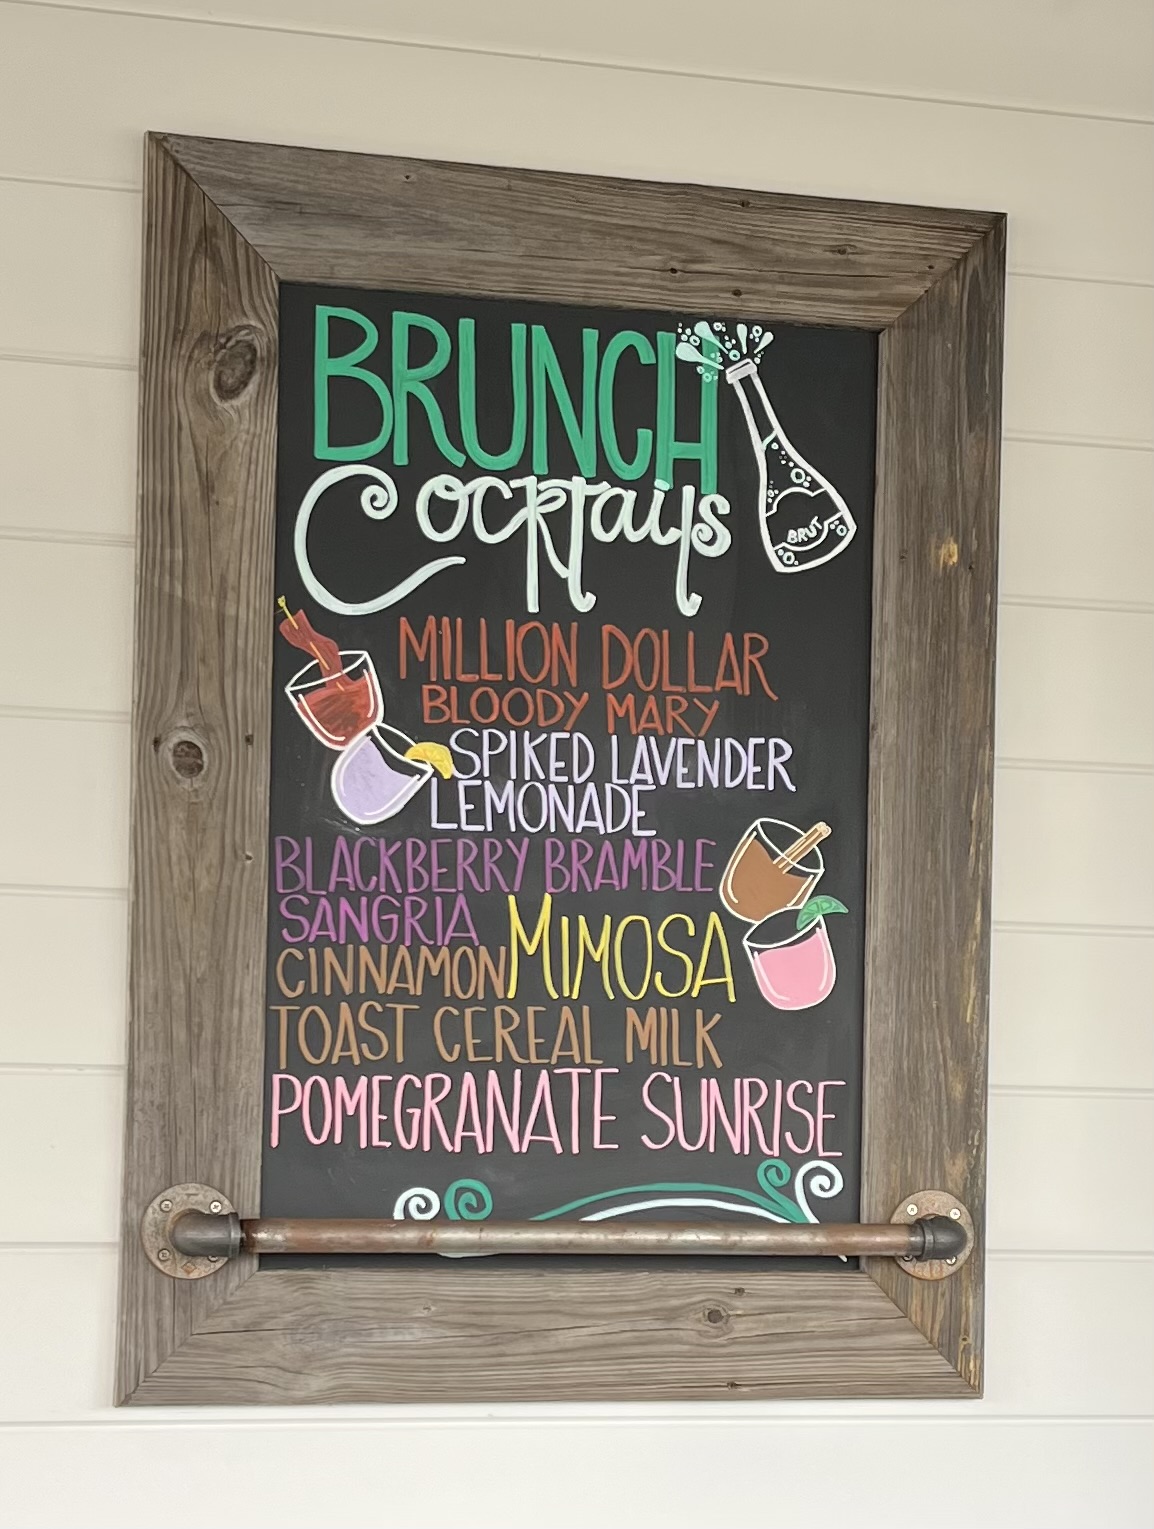 BRUNCH
Cocktails
BRUT
MILLION DOLLAR
BLOODY MARY
SPIKED LAVENDER
LEMONADE
BLACKBERRY BRAMBLE
SANGRIA
MIMOSA
CINNAMON
TOAST CEREAL MILK
POMEGRANATE SUNRISE